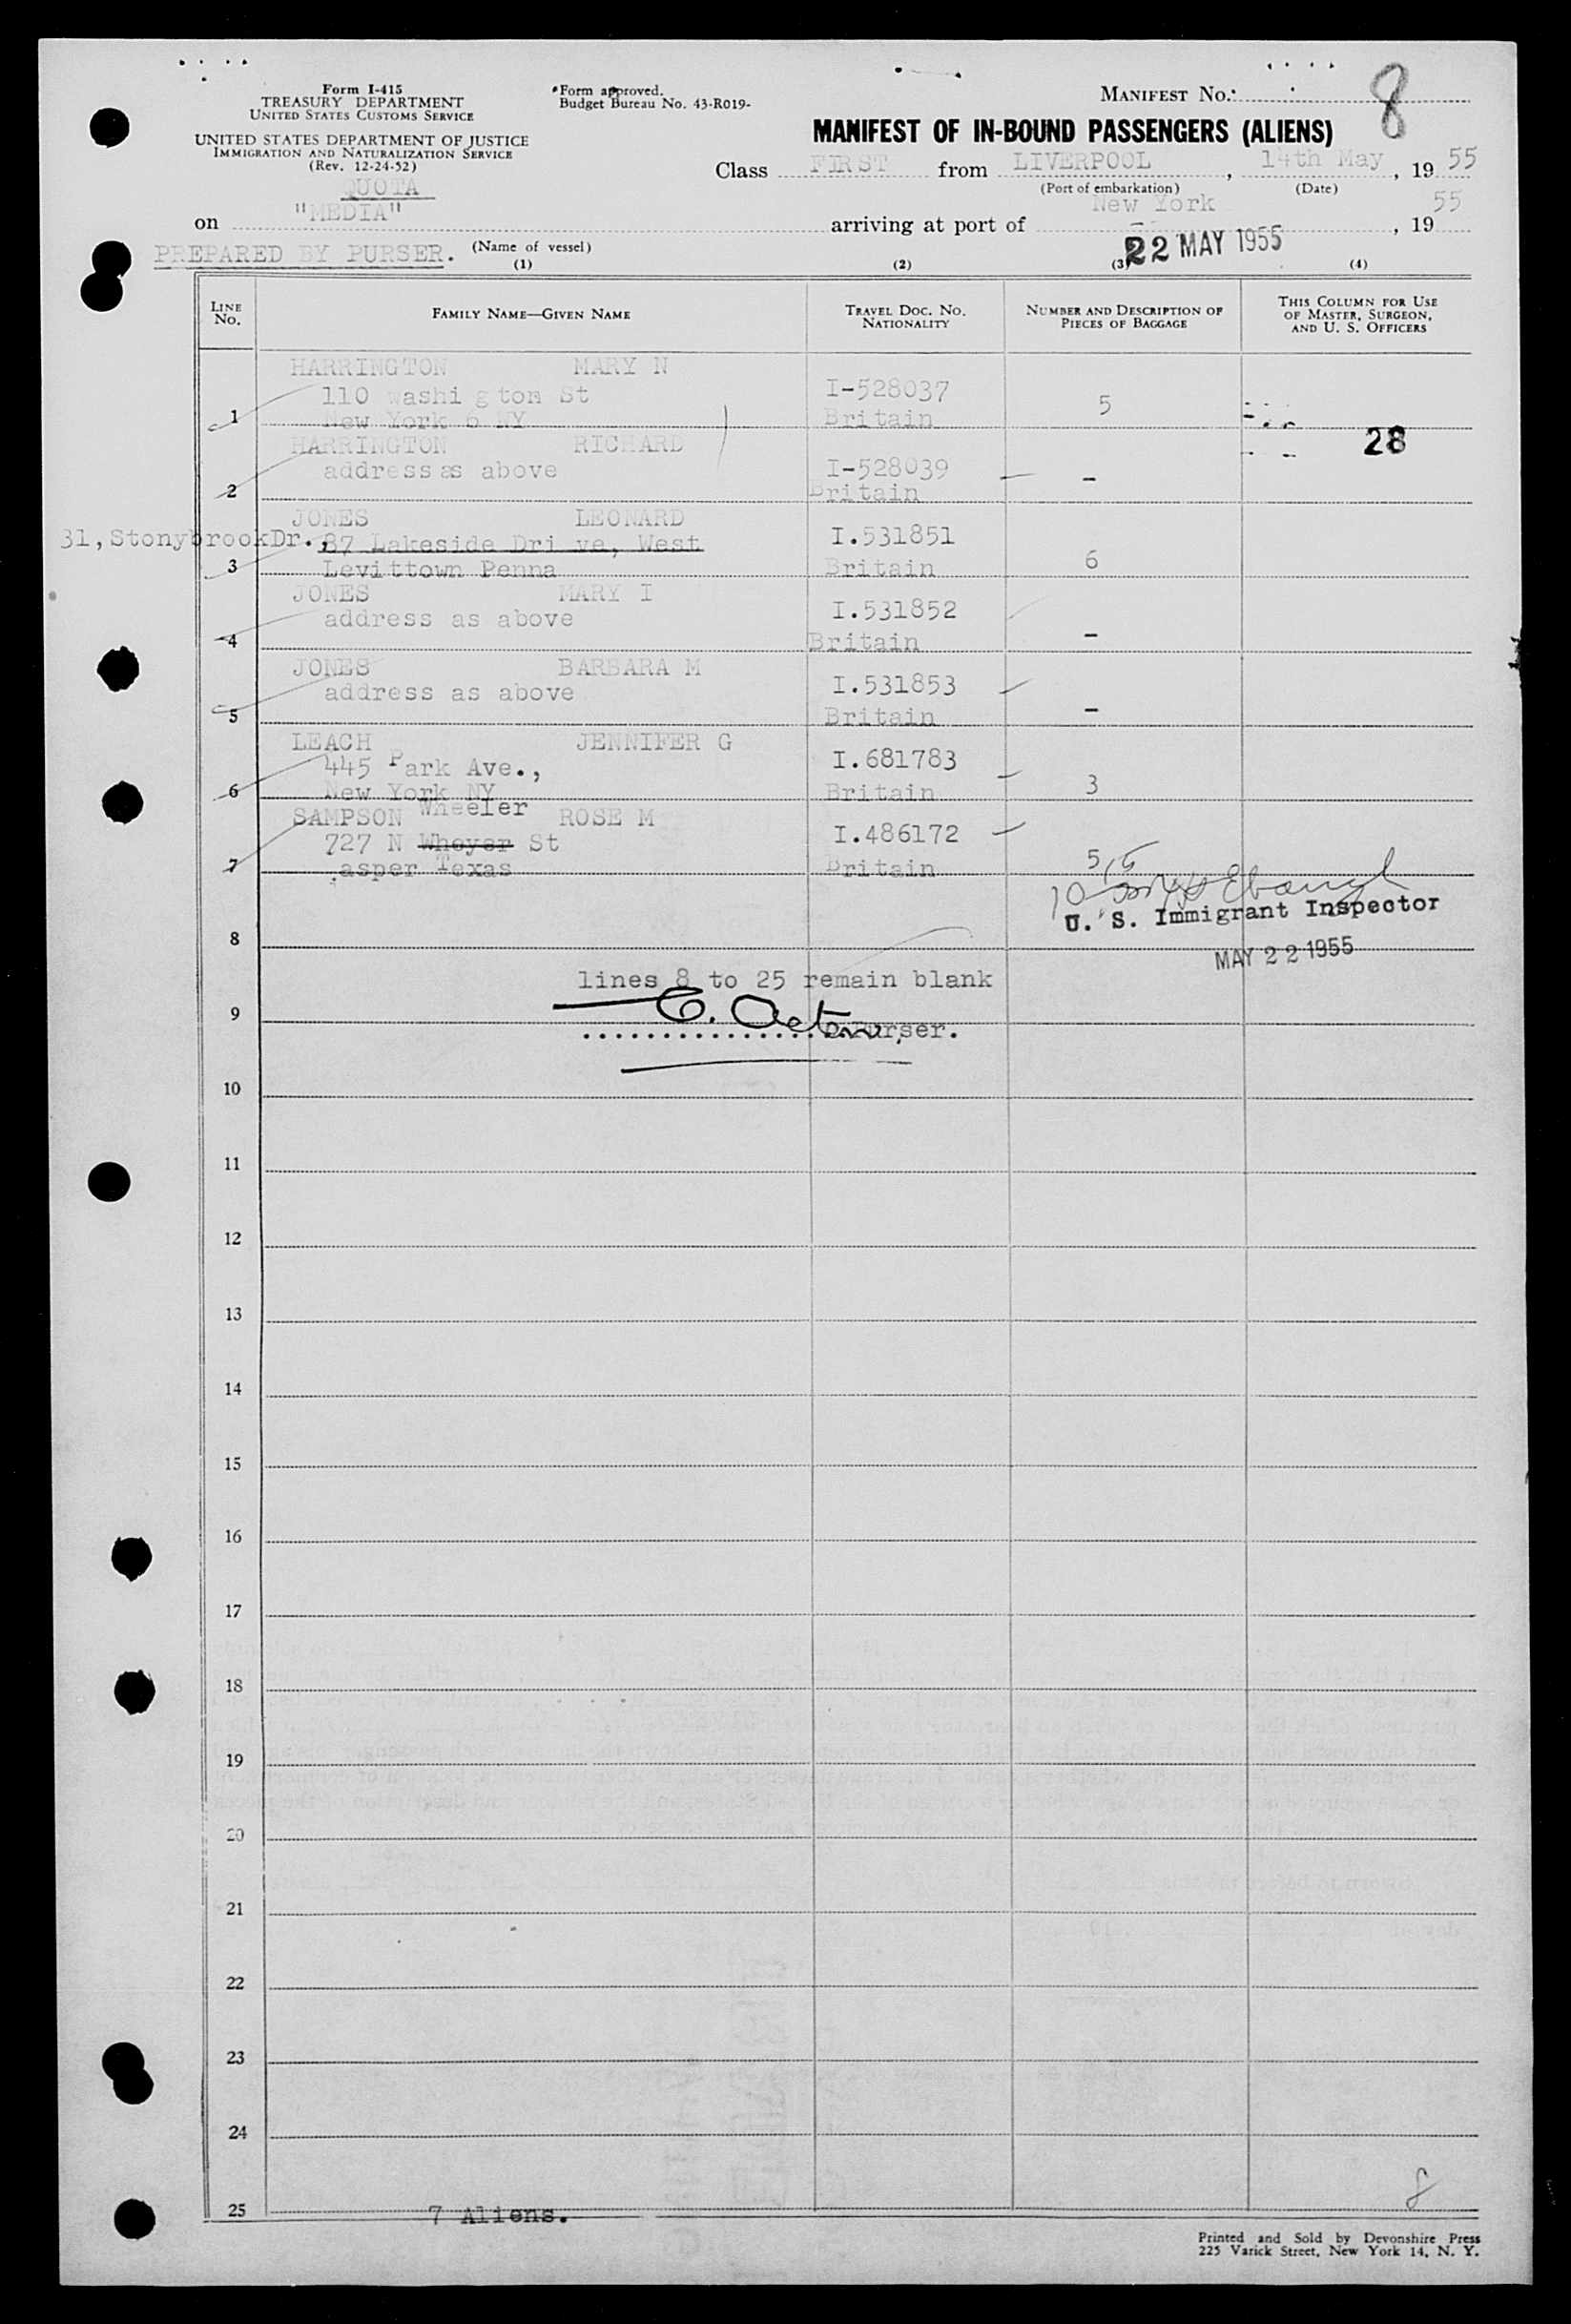 Form I-415
TREASURY DEPARTMENT
UNITED STATES CUSTOMS SERVICE
UNITED STATES DEPARTMENT OF JUSTICE
IMMIGRATION AND NATURALIZATION SERVICE
(Rev. 12-24-52)
QUOTA
Form approved.
Budget Bureau No. 43-R019-
MANIFEST NO. 8
MANIFEST OF IN-BOUND PASSENGERS (ALIENS)
Class FIRST from LIVERPOOL, 14th May, 19 55
(Port of embarkation) (Date)
on "MEDIA" arriving at port of New York, 19 55
(Name of vessel)
22 MAY 1955
PREPARED BY PURSER.
(1) (2) (3) (4)
LINE NO. FAMILY NAME—GIVEN NAME TRAVEL DOC. NO. NATIONALITY NUMBER AND DESCRIPTION OF PIECES OF BAGGAGE THIS COLUMN FOR USE OF MASTER, SURGEON, AND U. S. OFFICERS
HARRINGTON MARY N
110 washi gton St I-528037
1 New York 6 NY Britain 5
HARRINGTON RICHARD 28
address as above I-528039
2 Britain -
JONES LEONARD
31, StonybrookDr., 87 Lakeside Dri ve, West I.531851
3 Levittown Penna Britain 6
JONES MARY I
address as above I.531852
4 Britain -
JONES BARBARA M
address as above I.531853
5 Britain -
LEACH JENNIFER G
445 Park Ave., I.681783
6 New York NY Britain 3
Wheeler
SAMPSON ROSE M
727 N Wheyer St I.486172
7 asper Texas Britain 5
U. S. Immigrant Inspector
8
MAY 22 1955
lines 8 to 25 remain blank
9
Purser.
10
11
12
13
14
15
16
17
18
19
20
21
22
23
24
8
25 7 Aliens.
Printed and Sold by Devonshire Press
225 Varick Street, New York 14, N. Y.